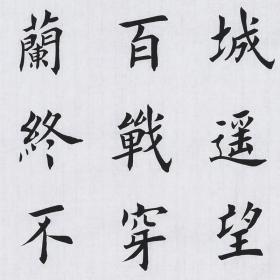 城遥望
百戰穿
蘭終不